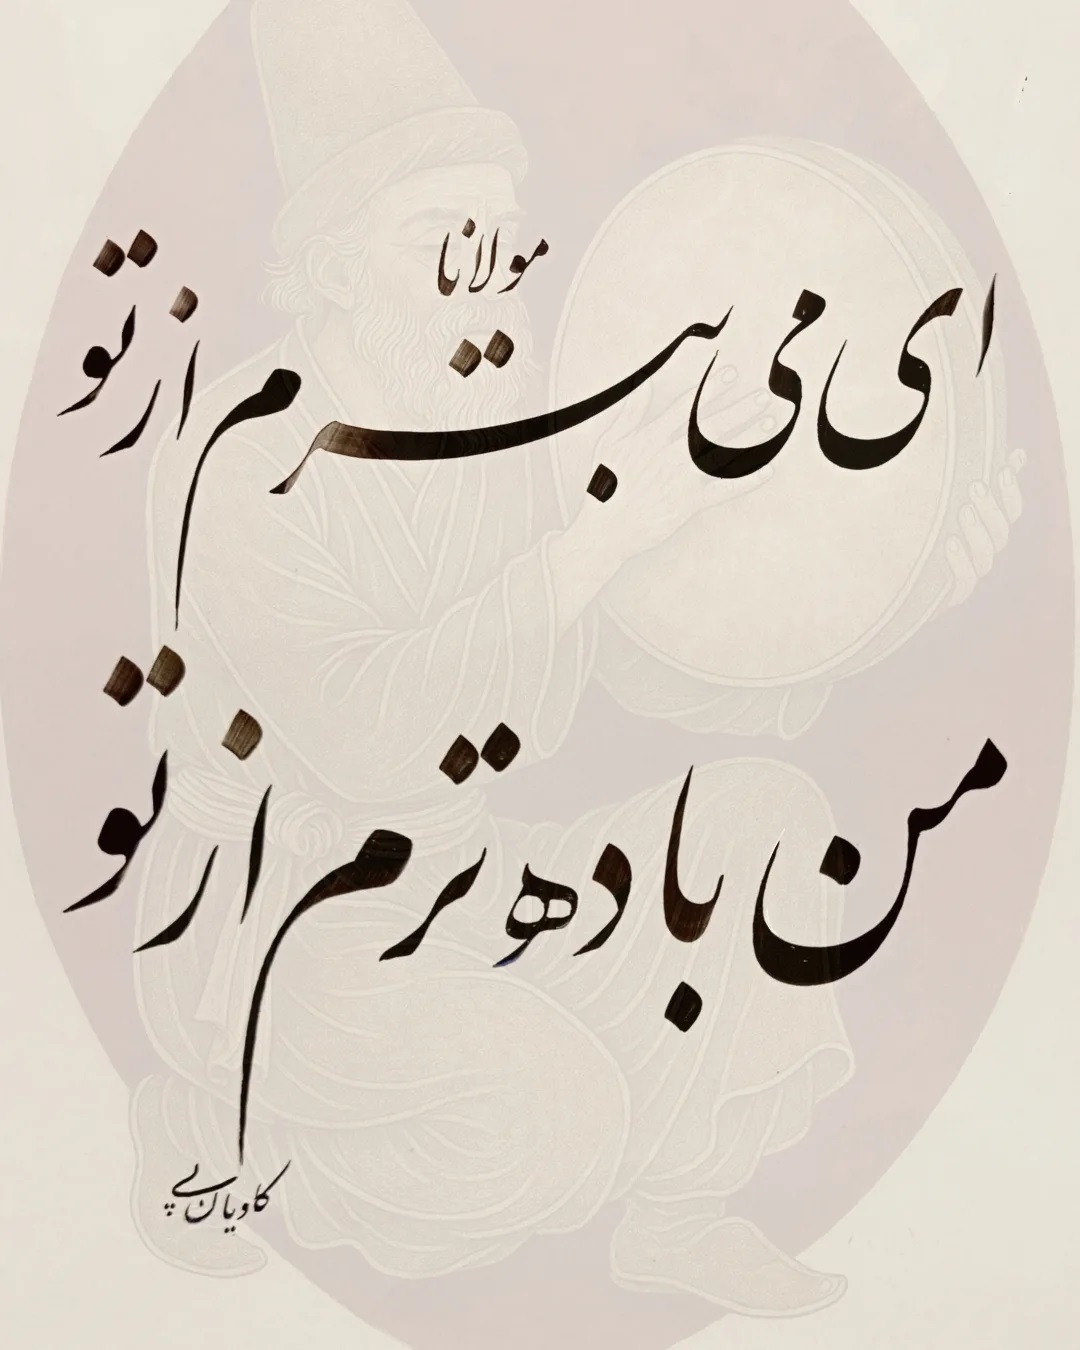 مولانا
ای می بترم از تو
من باده ترم از تو
کاویان پی